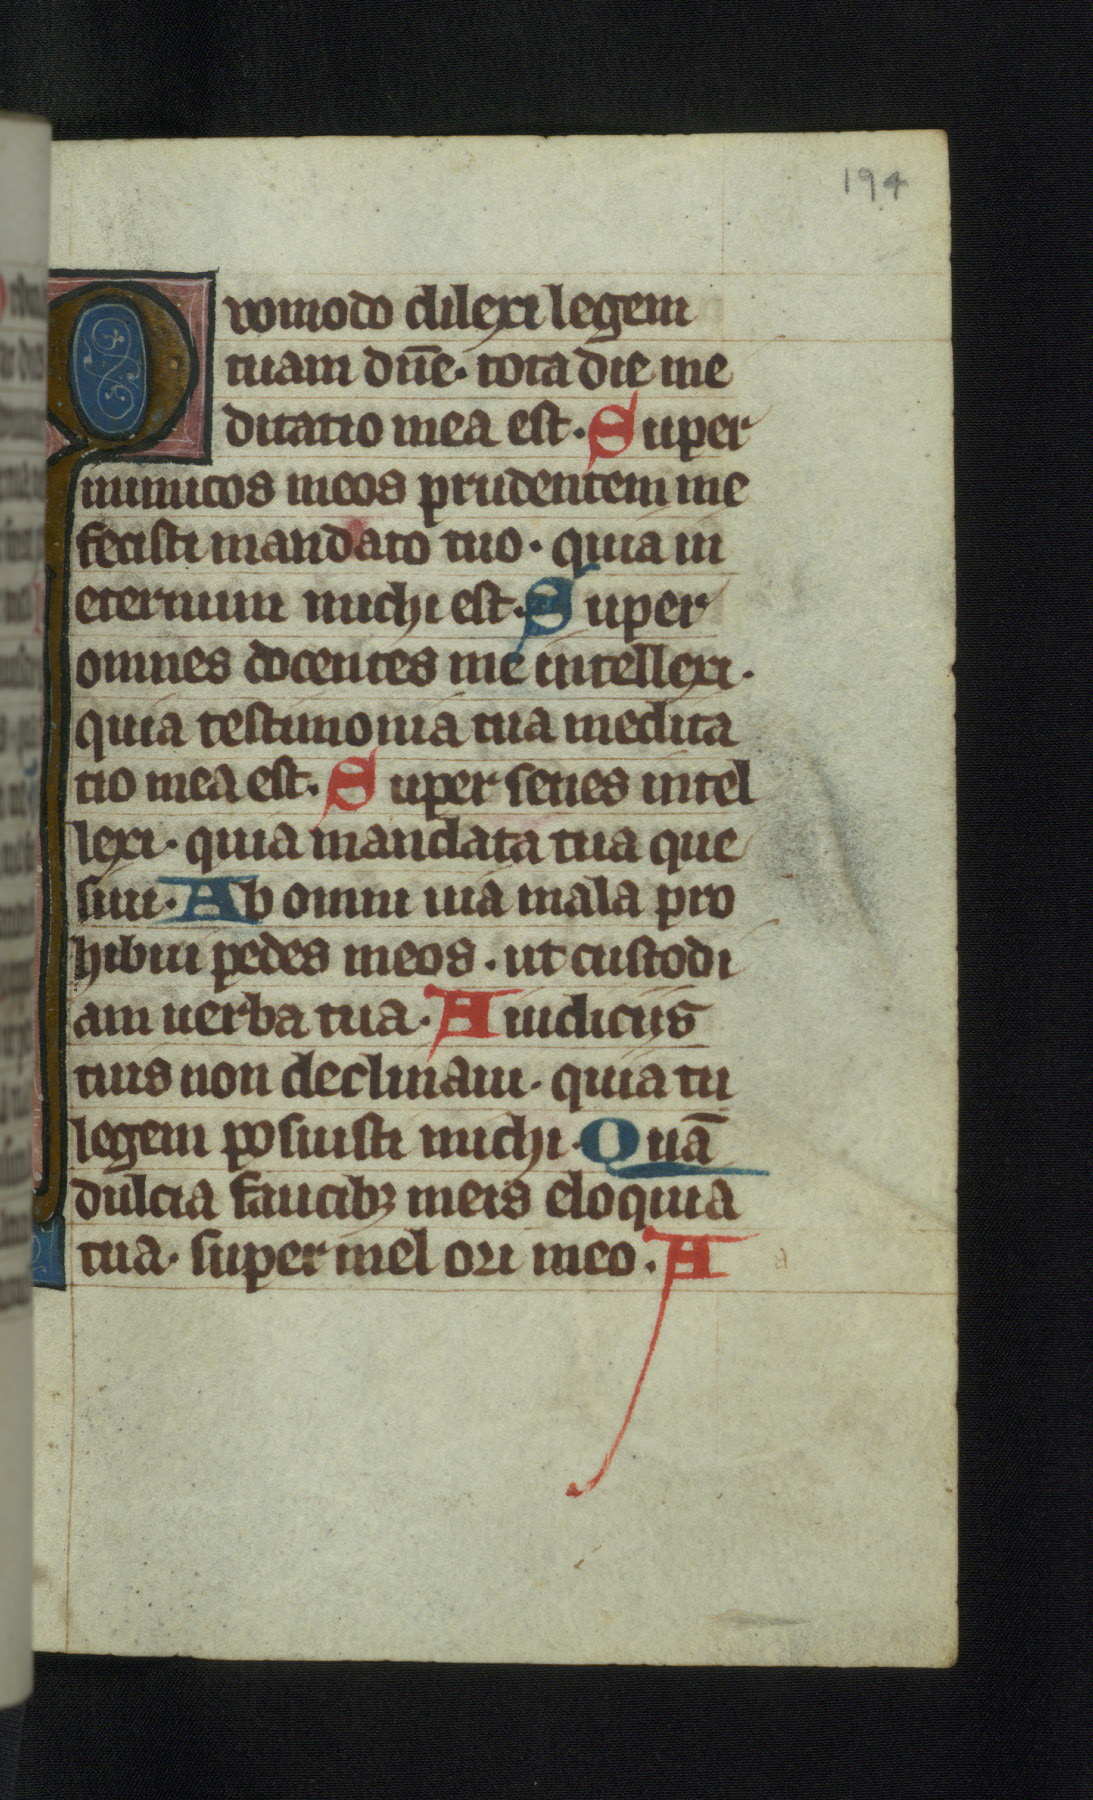 194
Quomodo dilexi legem
tuam dn̄e· tota die me
ditatio mea est· Super
inimicos meos prudentem me
fecisti mandato tuo· quia in
eternum michi est· Super
omnes docentes me intellexi·
quia testimonia tua medita
tio mea est· Super senes intel
lexi· quia mandata tua que
siui· Ab omni uia mala pro
hibui pedes meos· ut custodi
am uerba tua· A iudiciis
tuis non declinaui· quia tu
legem posuisti michi· Quā
dulcia faucibꝫ meis eloquia
tua· super mel ori meo· A
a